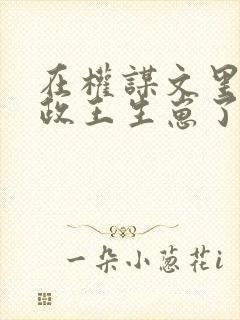 在權謀文里
政王生崽了
一朵小蔥花i